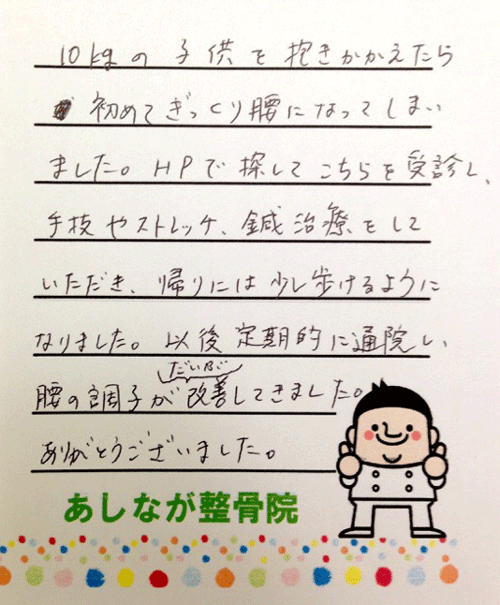 10kgの子供を抱きかかえたら
初めてぎっくり腰になってしまい
ました。HPで探してこちらを受診し、
手技やストレッチ、鍼治療をして
いただき、帰りには少し歩けるように
なりました。以後定期的に通院し、
腰の調子がだいぶ改善してきました。
ありがとうございました。
あしなが整骨院